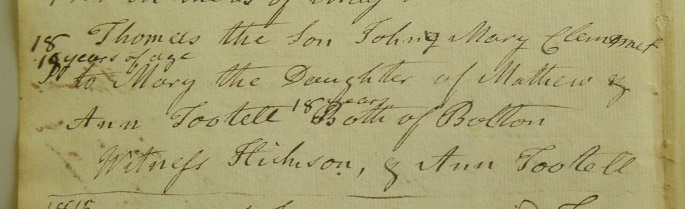 18 Thomas the Son John & Mary Clemmet
19 years of age
to Mary the Daughter of Mathew &
18 years
Ann Tootell Both of Bolton
Witness Hickson, & Ann Tootell
1815